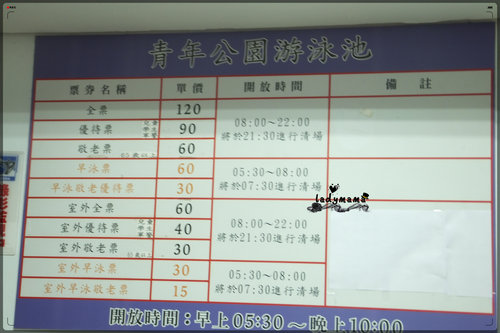 青年公園游泳池
票券名稱 單價 開放時間 備註
全票 120
優待票 兒童 學生 軍警 90
敬老票 65歲以上 60
08:00~22:00
將於21:30進行清場
早泳票 60
早泳敬老優待票 30
05:30~08:00
將於07:30進行清場
室外全票 60
室外優待票 兒童 學生 軍警 40
室外敬老票 65歲以上 30
08:00~22:00
將於21:30進行清場
室外早泳票 30
室外早泳敬老票 15
05:30~08:00
將於07:30進行清場
開放時間：早上05:30~晚上10:00
ladymama